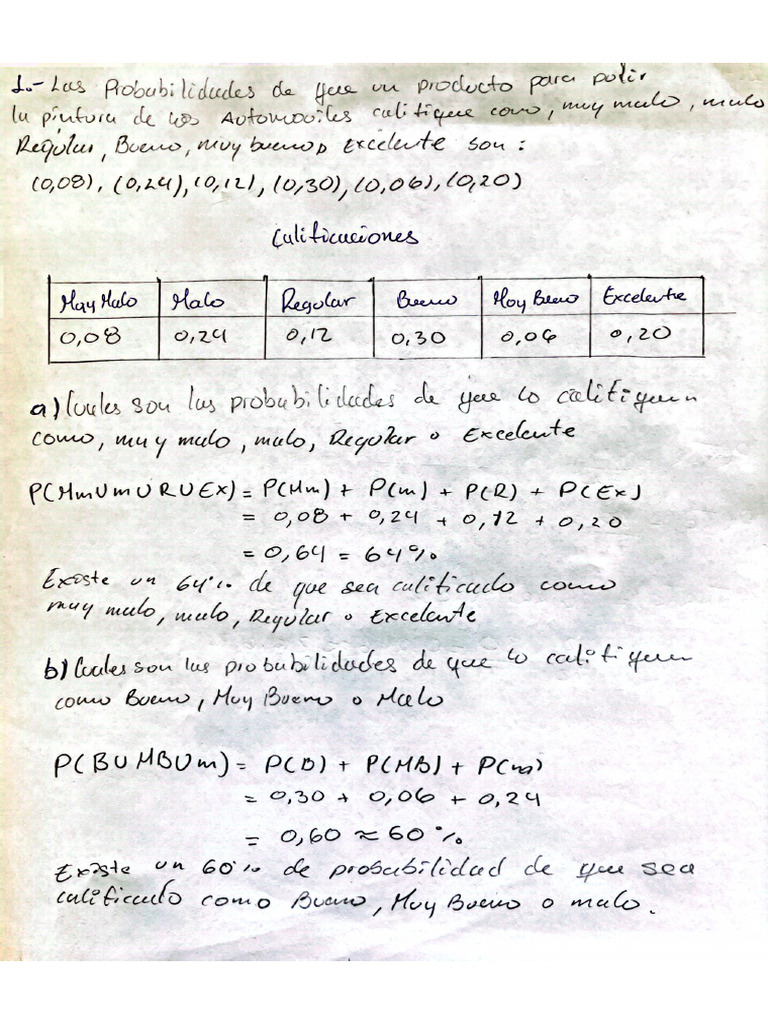 1.- Las Probabilidades de que un producto para pulir
la pintura de los Automoviles califique como, muy malo, malo
Regular, Bueno, muy bueno, Excelente son:
(0,08), (0,24), (0,12), (0,30), (0,06), (0,20)
Calificaciones
Muy Malo Malo Regular Bueno Muy Bueno Excelente
0,08 0,24 0,12 0,30 0,06 0,20
a) Cuales son las probabilidades de que lo califiquen
como, muy malo, malo, Regular o Excelente
P(MmUmURUEx) = P(Mm) + P(m) + P(R) + P(Ex)
= 0,08 + 0,24 + 0,12 + 0,20
= 0,64 = 64%
Existe un 64% de que sea calificado como
muy malo, malo, Regular o Excelente
b) Cuales son las probabilidades de que lo califiquen
como Bueno, Muy Bueno o Malo
P(BUMBUm) = P(B) + P(MB) + P(m)
= 0,30 + 0,06 + 0,24
= 0,60 ≈ 60%
Existe un 60% de probabilidad de que sea
calificado como Bueno, Muy Bueno o malo.